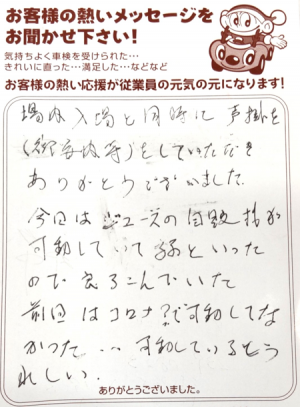 お客様の熱いメッセージを
お聞かせ下さい!
気持ちよく車検を受けられた…
きれいに直った…満足した…などなど
お客様の熱い応援が従業員の元気の元になります!
場内入場と同時に声掛を
(ご案内等)をしていただき
ありがとうございました。
今回はジュースの自販機が
可動していて孫といった
ので喜ろこんでいた
前回はコロナ?で可動してな
かった…可動しているとう
れしい.
ありがとうございました。